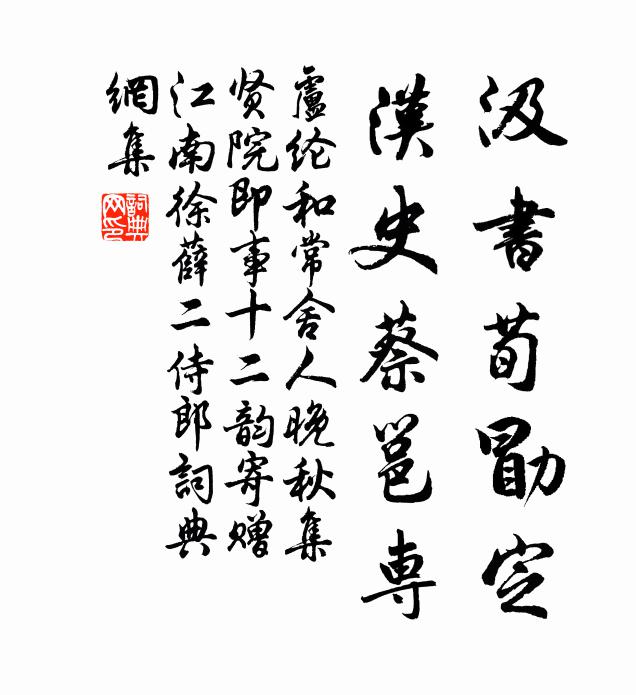 汲書荀勖定
漢史蔡邕專
盧纶和常舍人晚秋集
贤院即事十二韵寄赠
江南徐薛二侍郎詞典
網集
詞典網印